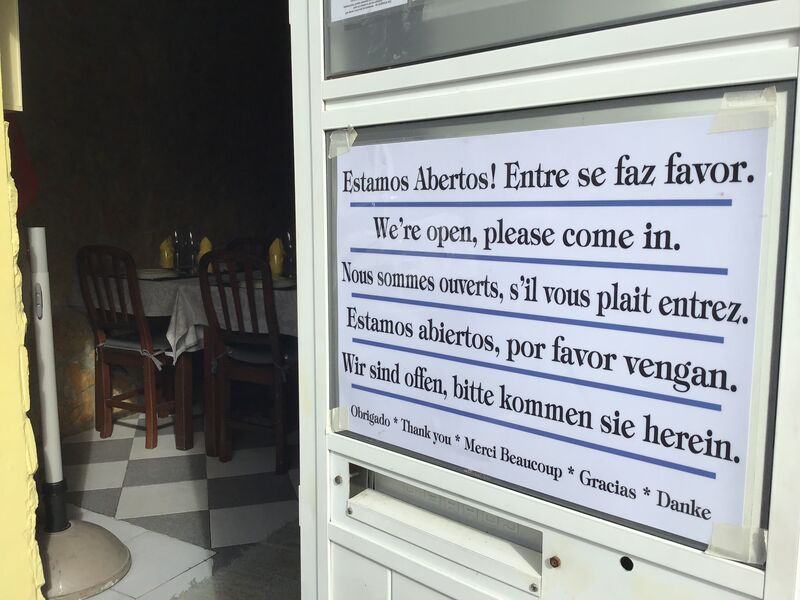 Estamos Abertos! Entre se faz favor.
We're open, please come in.
Nous sommes ouverts, s'il vous plait entrez.
Estamos abiertos, por favor vengan.
Wir sind offen, bitte kommen sie herein.
Obrigado * Thank you * Merci Beaucoup * Gracias * Danke